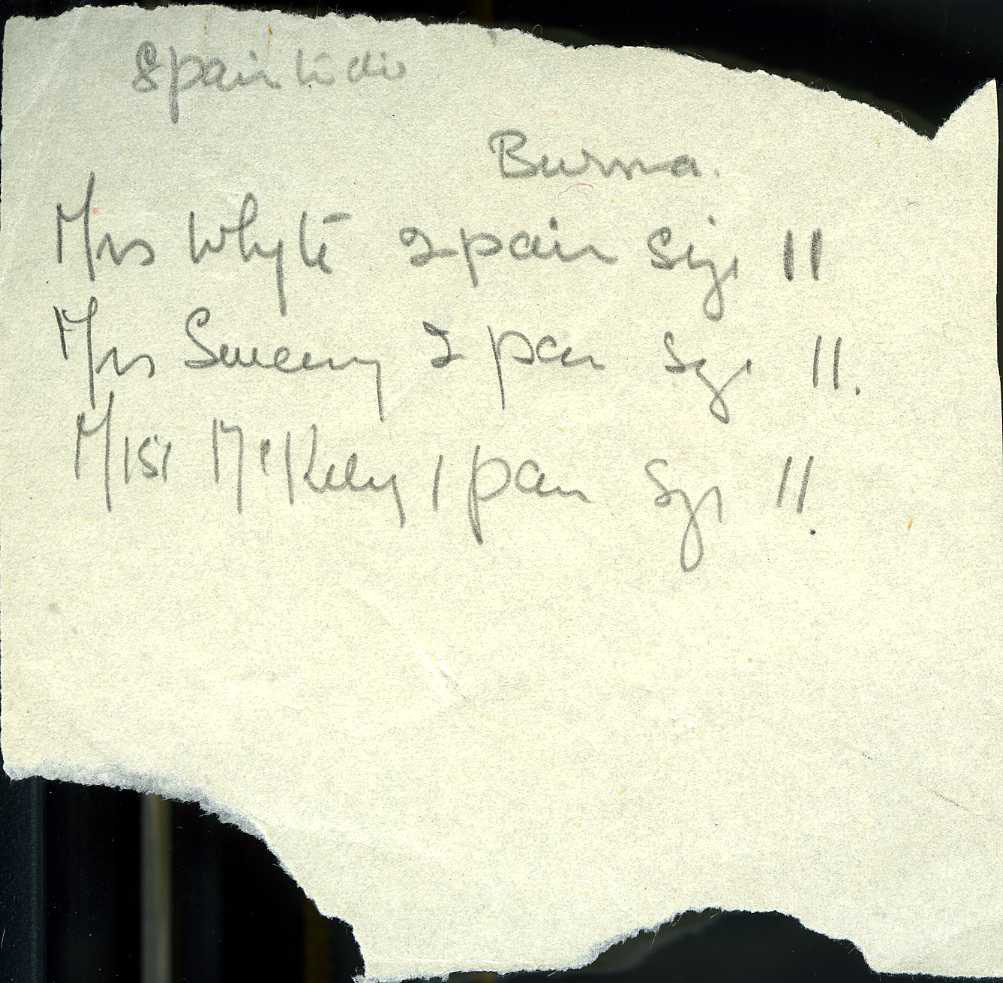 8 pair
Burma.
Mrs Whyte 2 pair Size 11
Mrs Sweeny 2 pair Size 11.
Miss McKelvy 1 pair Size 11.